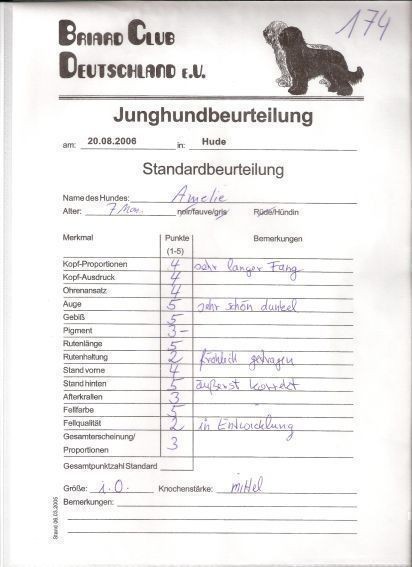 174
BRIARD CLUB
DEUTSCHLAND E.V.
Junghundbeurteilung
am: 20.08.2006 in: Hude
Standardbeurteilung
Name des Hundes: Amelie
Alter: 7 Mon. noir/fauve/gris Rüde/Hündin
Merkmal Punkte Bemerkungen
(1-5)
Kopf-Proportionen 4 sehr langer Fang
Kopf-Ausdruck 4
Ohrenansatz 4
Auge 5 sehr schön dunkel
Gebiß 5
Pigment 3-
Rutenlänge 5
Rutenhaltung 2 fröhlich getragen
Stand vorne 4
Stand hinten 5 äußerst korrekt
Afterkrallen 3
Fellfarbe 5
Fellqualität 2 in Entwicklung
Gesamterscheinung/
Proportionen 3
Gesamtpunktzahl Standard
Größe: i.O. Knochenstärke: mittel
Bemerkungen:
Stand.06.03.2005